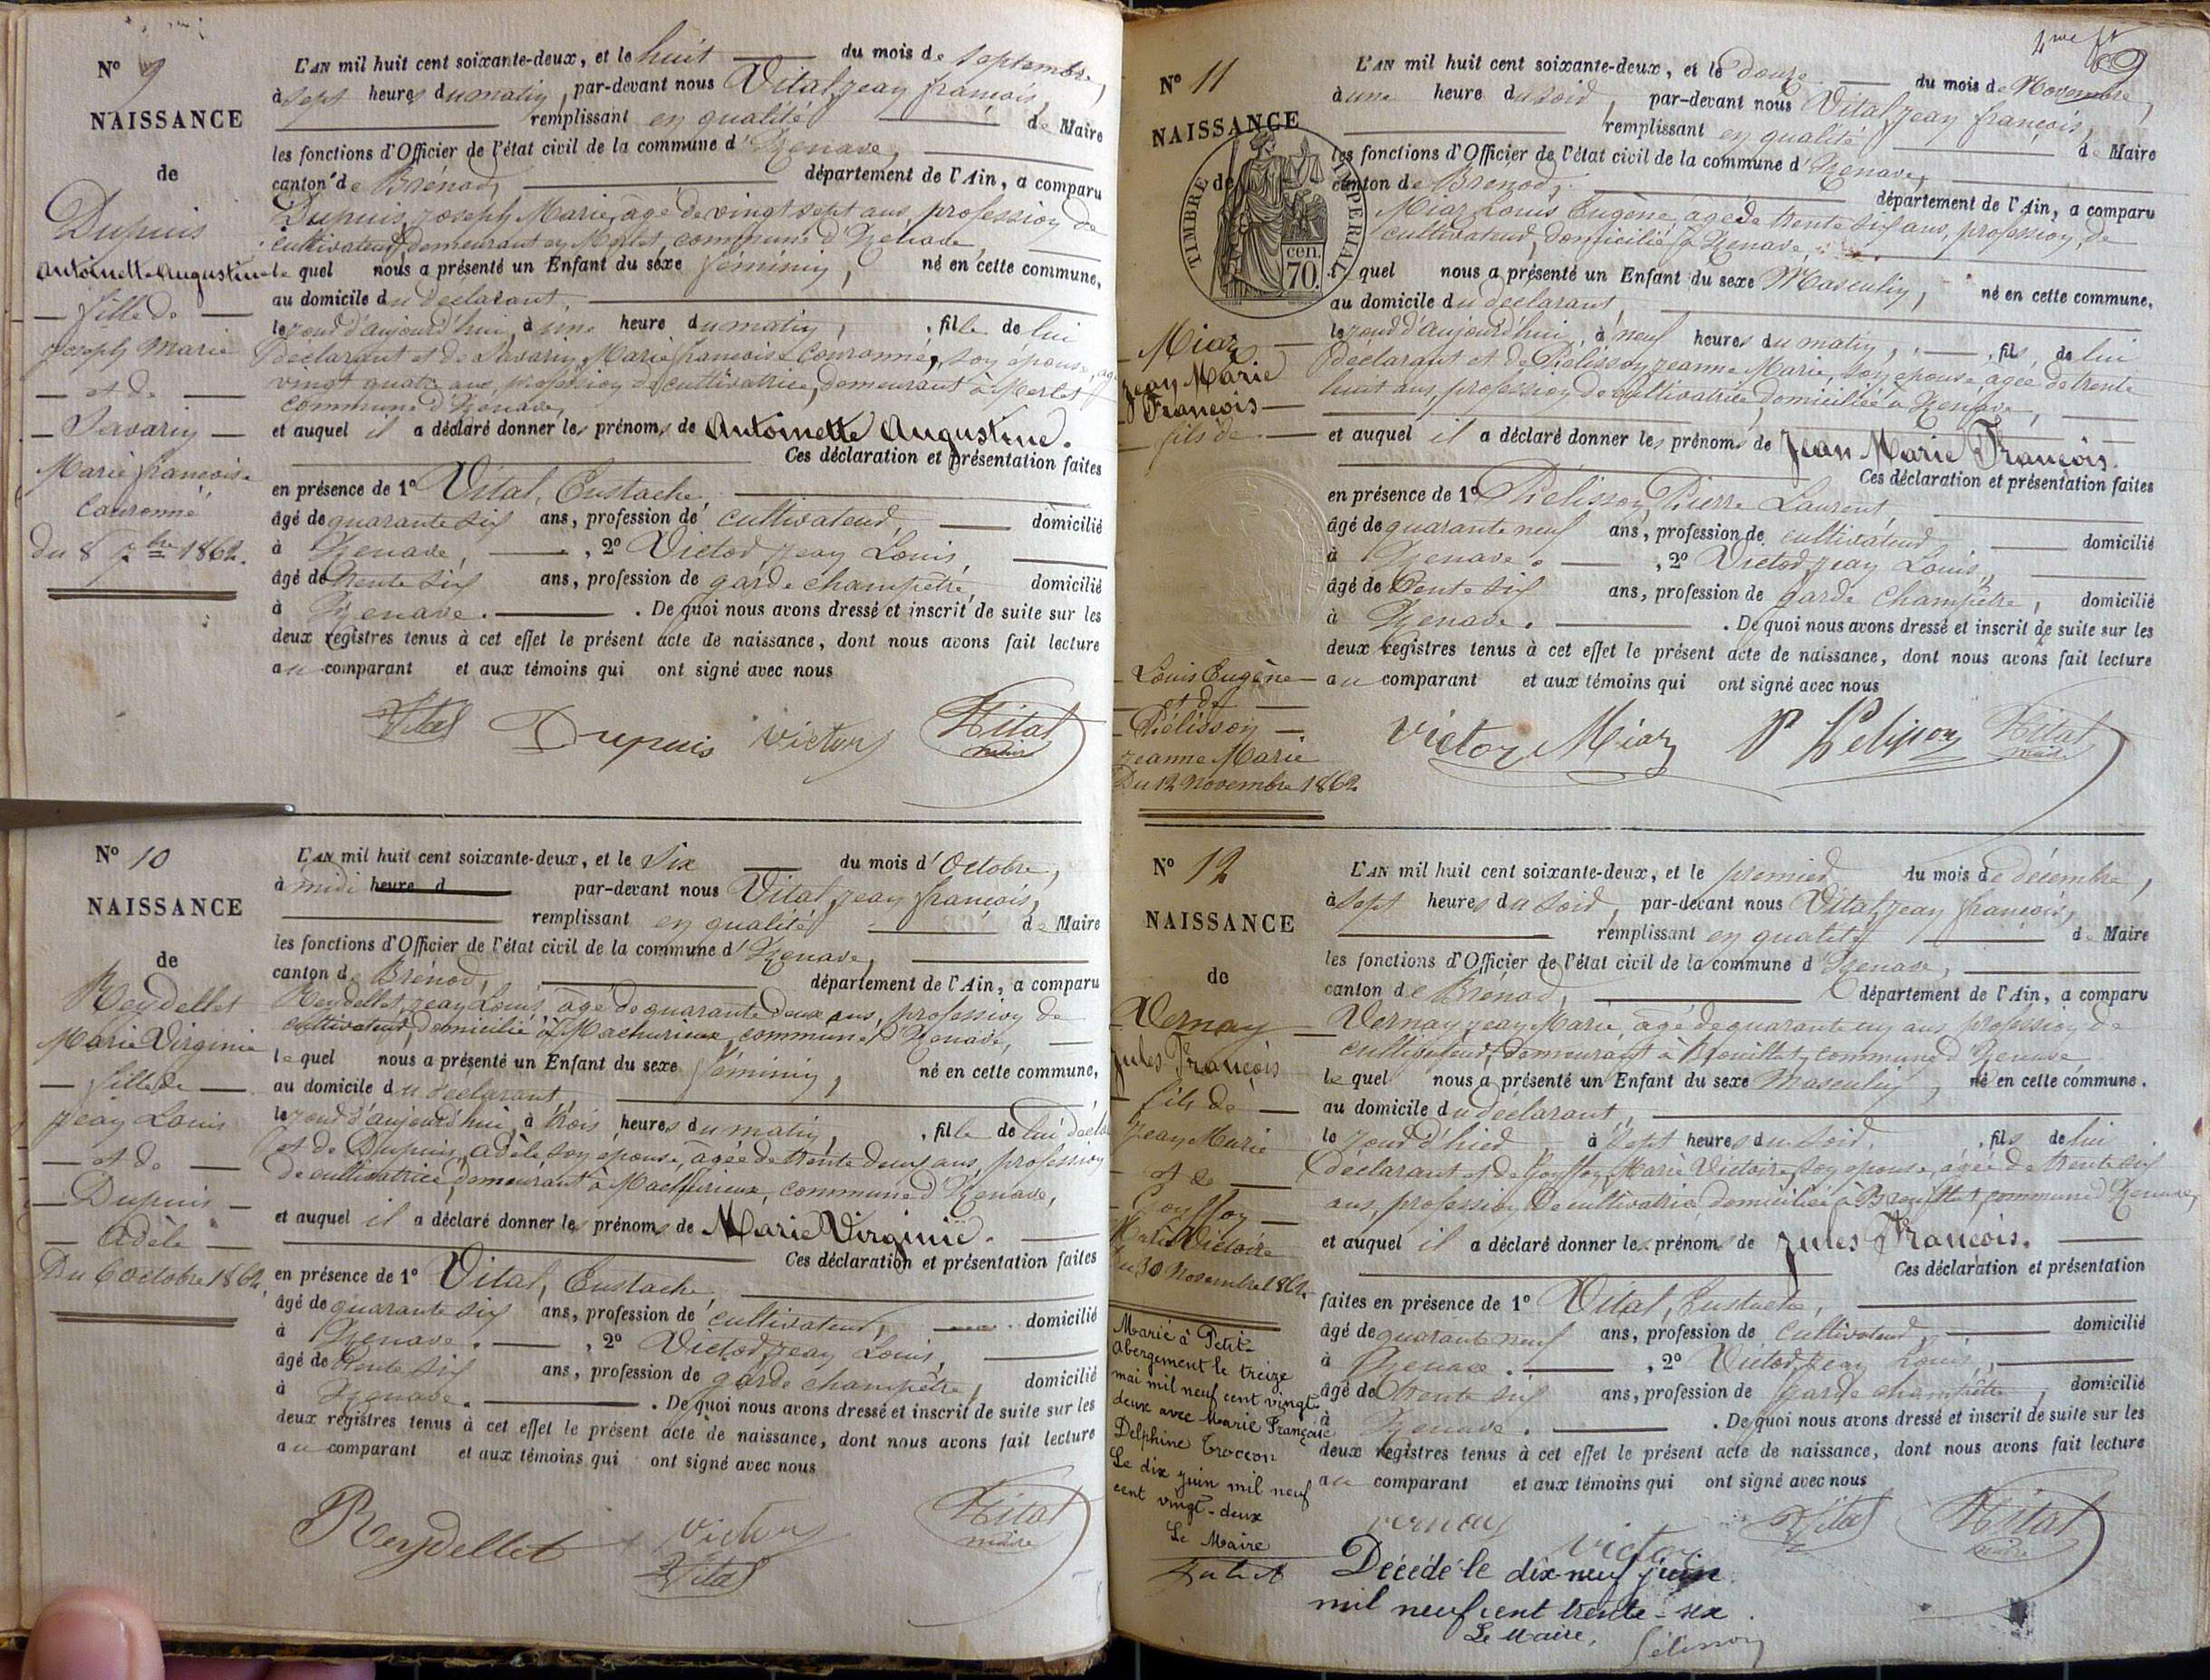 N° 9
NAISSANCE
de
Dupuis
Antoinette Augustine
fille de
Joseph Marie
et de
Savarin
Marie françoise
Couronné
Du 8 7bre 1862.
L'AN mil huit cent soixante-deux, et le huit du mois de Septembre,
à Sept heures du matin, par-devant nous Vital, Jean françois,
remplissant en qualité de Maire
les fonctions d'Officier de l'état civil de la commune d'Izenave,
canton de Brénod, département de l'Ain, a comparu
Dupuis, Joseph Marie, âgé de vingt sept ans, profession de
cultivateur, demeurant en Merlet, commune d'Izenave,
le quel nous a présenté un Enfant du sexe féminin, né en cette commune,
au domicile du déclarant,
le jour d'aujourd'hui, à une heure du matin, fille de lui
déclarant et de Savarin, Marie françoise Couronné, son épouse, agée
vingt quatre ans, profession de cultivatrice, demeurant à Merlet
commune d'Izenave,
et auquel il a déclaré donner les prénoms de Antoinette Augustine.
Ces déclaration et présentation faites
en présence de 1° Vital, Eustache,
âgé de quarante six ans, profession de cultivateur, domicilié
à Izenave, , 2° Victor, Jean Louis,
âgé de trente six ans, profession de garde champêtre, domicilié
à Izenave. . De quoi nous avons dressé et inscrit de suite sur les
deux registres tenus à cet effet le présent acte de naissance, dont nous avons fait lecture
au comparant et aux témoins qui ont signé avec nous
Vital Dupuis Victor Vital
maire
N° 10
NAISSANCE
de
Reydellet
Marie Virginie
fille de
Jean Louis
et de
Dupuis
Adèle
Du 6 Octobre 1862,
L'AN mil huit cent soixante-deux, et le Six du mois d'Octobre,
à midi heure d par-devant nous Vital, Jean françois,
remplissant en qualité de Maire
les fonctions d'Officier de l'état civil de la commune d'Izenave,
canton de Brénod, département de l'Ain, a comparu
Reydellet, Jean Louis, âgé de quarante deux ans, profession de
cultivateur, domicilié à Machurieux, commune d'Izenave,
le quel nous a présenté un Enfant du sexe féminin, né en cette commune,
au domicile du déclarant,
le jour d'aujourd'hui, à trois heures du matin, , fille de lui
et de Dupuis, Adèle son épouse, âgée de trente deux ans, profession
de cultivatrice, demeurant à Machurieux, commune d'Izenave,
et auquel il a déclaré donner les prénoms de Marie Virginie.
Ces déclaration et présentation faites
en présence de 1° Vital, Eustache,
âgé de quarante six ans, profession de cultivateur, domicilié
à Izenave. , 2° Victor, Jean Louis,
âgé de trente six ans, profession de garde champêtre, domicilié
à Izenave. . De quoi nous avons dressé et inscrit de suite sur les
deux registres tenus à cet effet le présent acte de naissance, dont nous avons fait lecture
au comparant et aux témoins qui ont signé avec nous
Reydellet Victor Vital
Vital maire
4me ft
9
N° 11
NAISSANCE
de
TIMBRE IMPERIAL
70 cen.
Miaz
Jean Marie
François
fils de
Louis Eugène
et de
Pélisson
Jeanne Marie
Du 12 Novembre 1862
L'AN mil huit cent soixante-deux, et le douze du mois de Novembre,
à une heure du soir, par-devant nous Vital, Jean françois,
remplissant en qualité de Maire
les fonctions d'Officier de l'état civil de la commune d'Izenave,
canton de Brenod, département de l'Ain, a comparu
Miaz, Louis Eugène, agé de trente six ans, profession, de
cultivateur, domicilié à Izenave
le quel nous a présenté un Enfant du sexe Masculin, né en cette commune,
au domicile du déclarant,
le jour d'aujourd'hui, à neuf heures du matin, , fils de lui
déclarant et de Pélisson, Jeanne Marie, son épouse, agée de trente
huit ans, profession de cultivatrice, domiciliée à Izenave,
et auquel il a déclaré donner les prénoms de Jean Marie François.
Ces déclaration et présentation faites
en présence de 1° Pélisson, Pierre Laurent,
âgé de quarante neuf ans, profession de cultivateur, domicilié
à Izenave. , 2° Victor, Jean Louis,
âgé de trente six ans, profession de garde champêtre, domicilié
à Izenave. . De quoi nous avons dressé et inscrit de suite sur les
deux registres tenus à cet effet le présent acte de naissance, dont nous avons fait lecture
au comparant et aux témoins qui ont signé avec nous
Victor Miaz P Pelisson Vital
maire
N° 12
NAISSANCE
de
Vernay
Jules François
fils de
Jean Marie
et de
Marie Victoire
Du 30 Novembre 1862.
Marié à Petit-
Abergement le treize
mai mil neuf cent vingt-
deux avec Marie Françoise
Delphine Troccon
Le dix juin mil neuf
cent vingt-deux
Le Maire
L'AN mil huit cent soixante-deux, et le premier du mois de décembre,
à Sept heures du Soir, par-devant nous Vital, Jean françois,
remplissant en qualité de Maire
les fonctions d'Officier de l'état civil de la commune d'Izenave,
canton de Brenod, département de l'Ain, a comparu
Vernay, Jean Marie, agé de quarante un ans, profession de
cultivateur, demeurant à Brouillet, commune d'Izenave
le quel nous a présenté un Enfant du sexe Masculin, né en cette commune.
au domicile du déclarant,
le jour d'hier à Sept heures du Soir. , fils de lui
déclarant et de Marie Victoire, son épouse, âgée de trente six
ans, profession de cultivatrice, domiciliée à Brouillet, commune d'Izenave,
et auquel il a déclaré donner les prénoms de Jules François.
Ces déclaration et présentation
faites en présence de 1° Vital, Eustache,
âgé de quarante neuf ans, profession de cultivateur, domicilié
à Izenave. , 2° Victor, Jean Louis,
âgé de trente six ans, profession de garde champêtre, domicilié
à Izenave. . De quoi nous avons dressé et inscrit de suite sur les
deux registres tenus à cet effet le présent acte de naissance, dont nous avons fait lecture
au comparant et aux témoins qui ont signé avec nous
Vernay Victor Vital Vital
maire
Décédé le dix-neuf juin
mil neuf cent trente-six.
Le Maire,
Pélisson